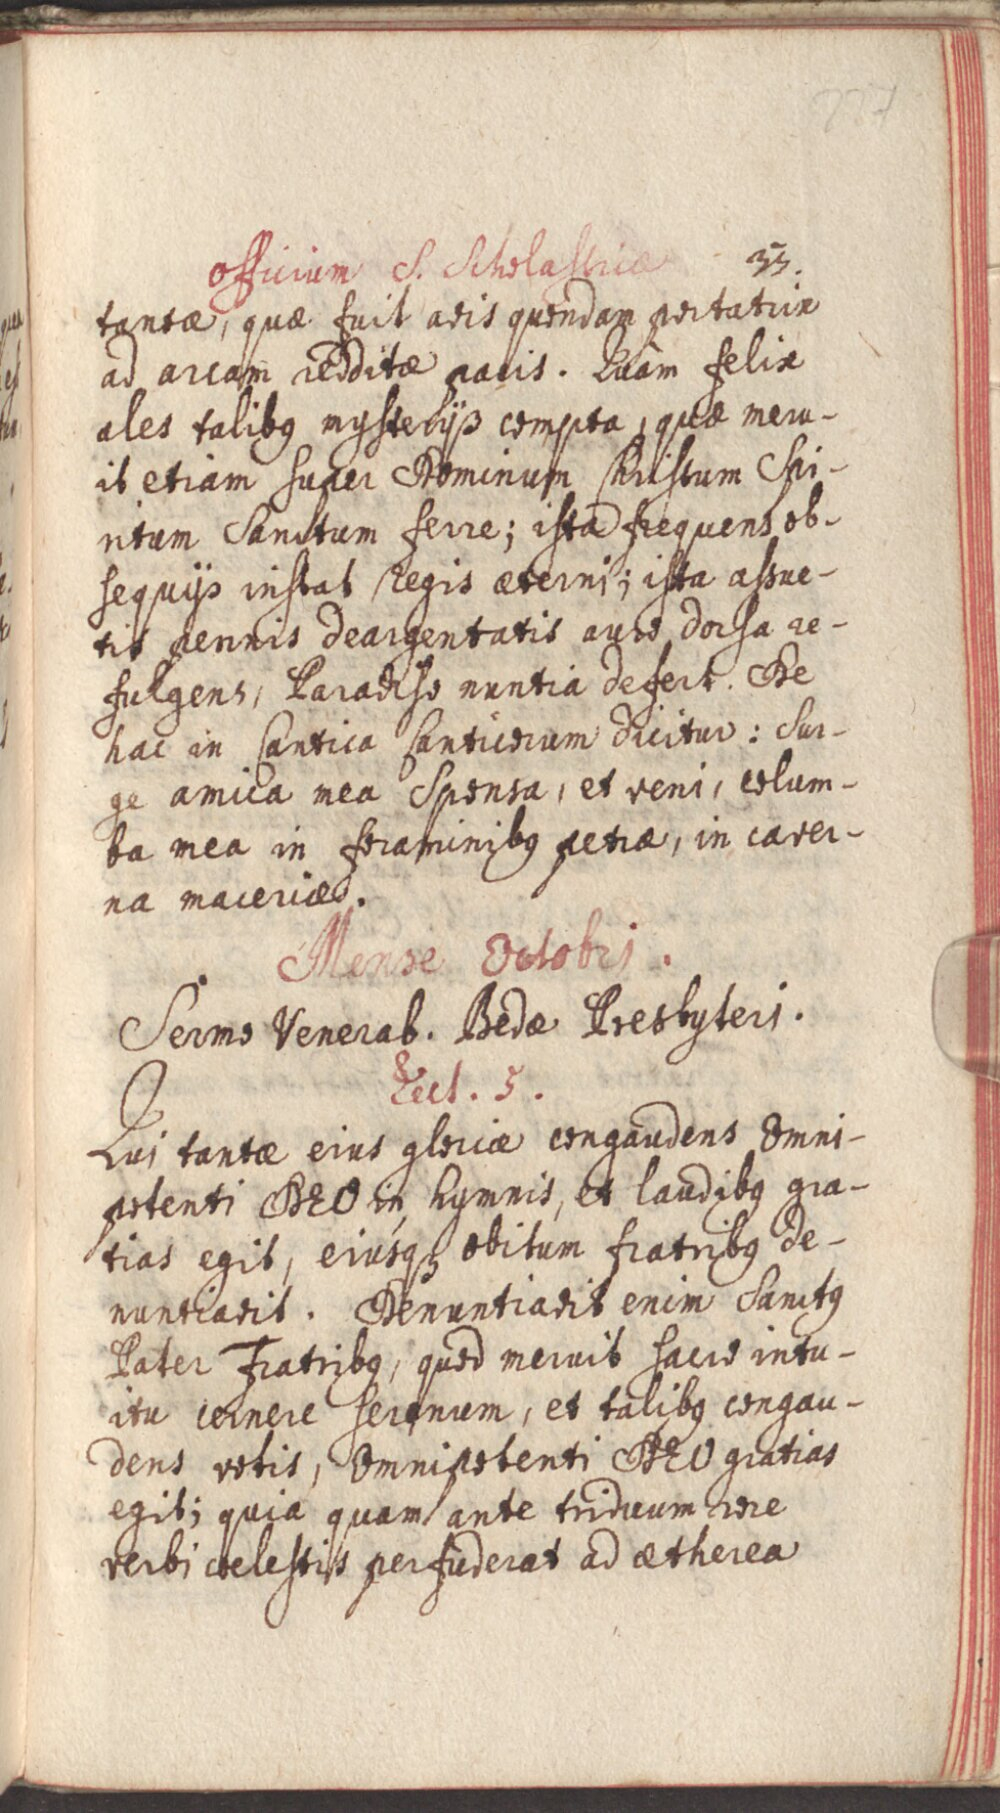 227
Officium S. Scholasticæ 33.
tantæ, quæ fuit avis quondam portatrix
ad arcam redditæ pacis. Quàm felix
ales talibꝯ mysterijs compta, quæ meru-
it etiam super Dominum Christum Spi-
ritum Sanctum ferre; ista frequens ob-
sequijs instat Regis æterni; ista assue-
tis pennis deargentatis auro dorsa re-
fulgens, Paradiso nuntia defert. De
hac in Cantica Canticorum dicitur: Sur-
ge amica mea Sponsa, et veni, colum-
ba mea in foraminibꝯ petræ, in caver-
na maceriæ.
Mense Octobri.
Sermo Venerab. Bedæ Presbyteri.
Lect. 5.
Qui tantæ eius gloriæ congaudens Omni-
potenti DEO in hymnis, et laudibꝯ gra-
tias egit, eiusqꝫ obitum fratribꝯ de-
nuntiavit. Denuntiavit enim Sanctꝯ
Pater Fratribꝯ, quod meruit sacro intu-
itu cernere serenum, et talibꝯ congau-
dens votis, Omnipotenti DEO gratias
egit; quia quam ante triduum rore
verbi cœlestis perfuderat ad ætherea